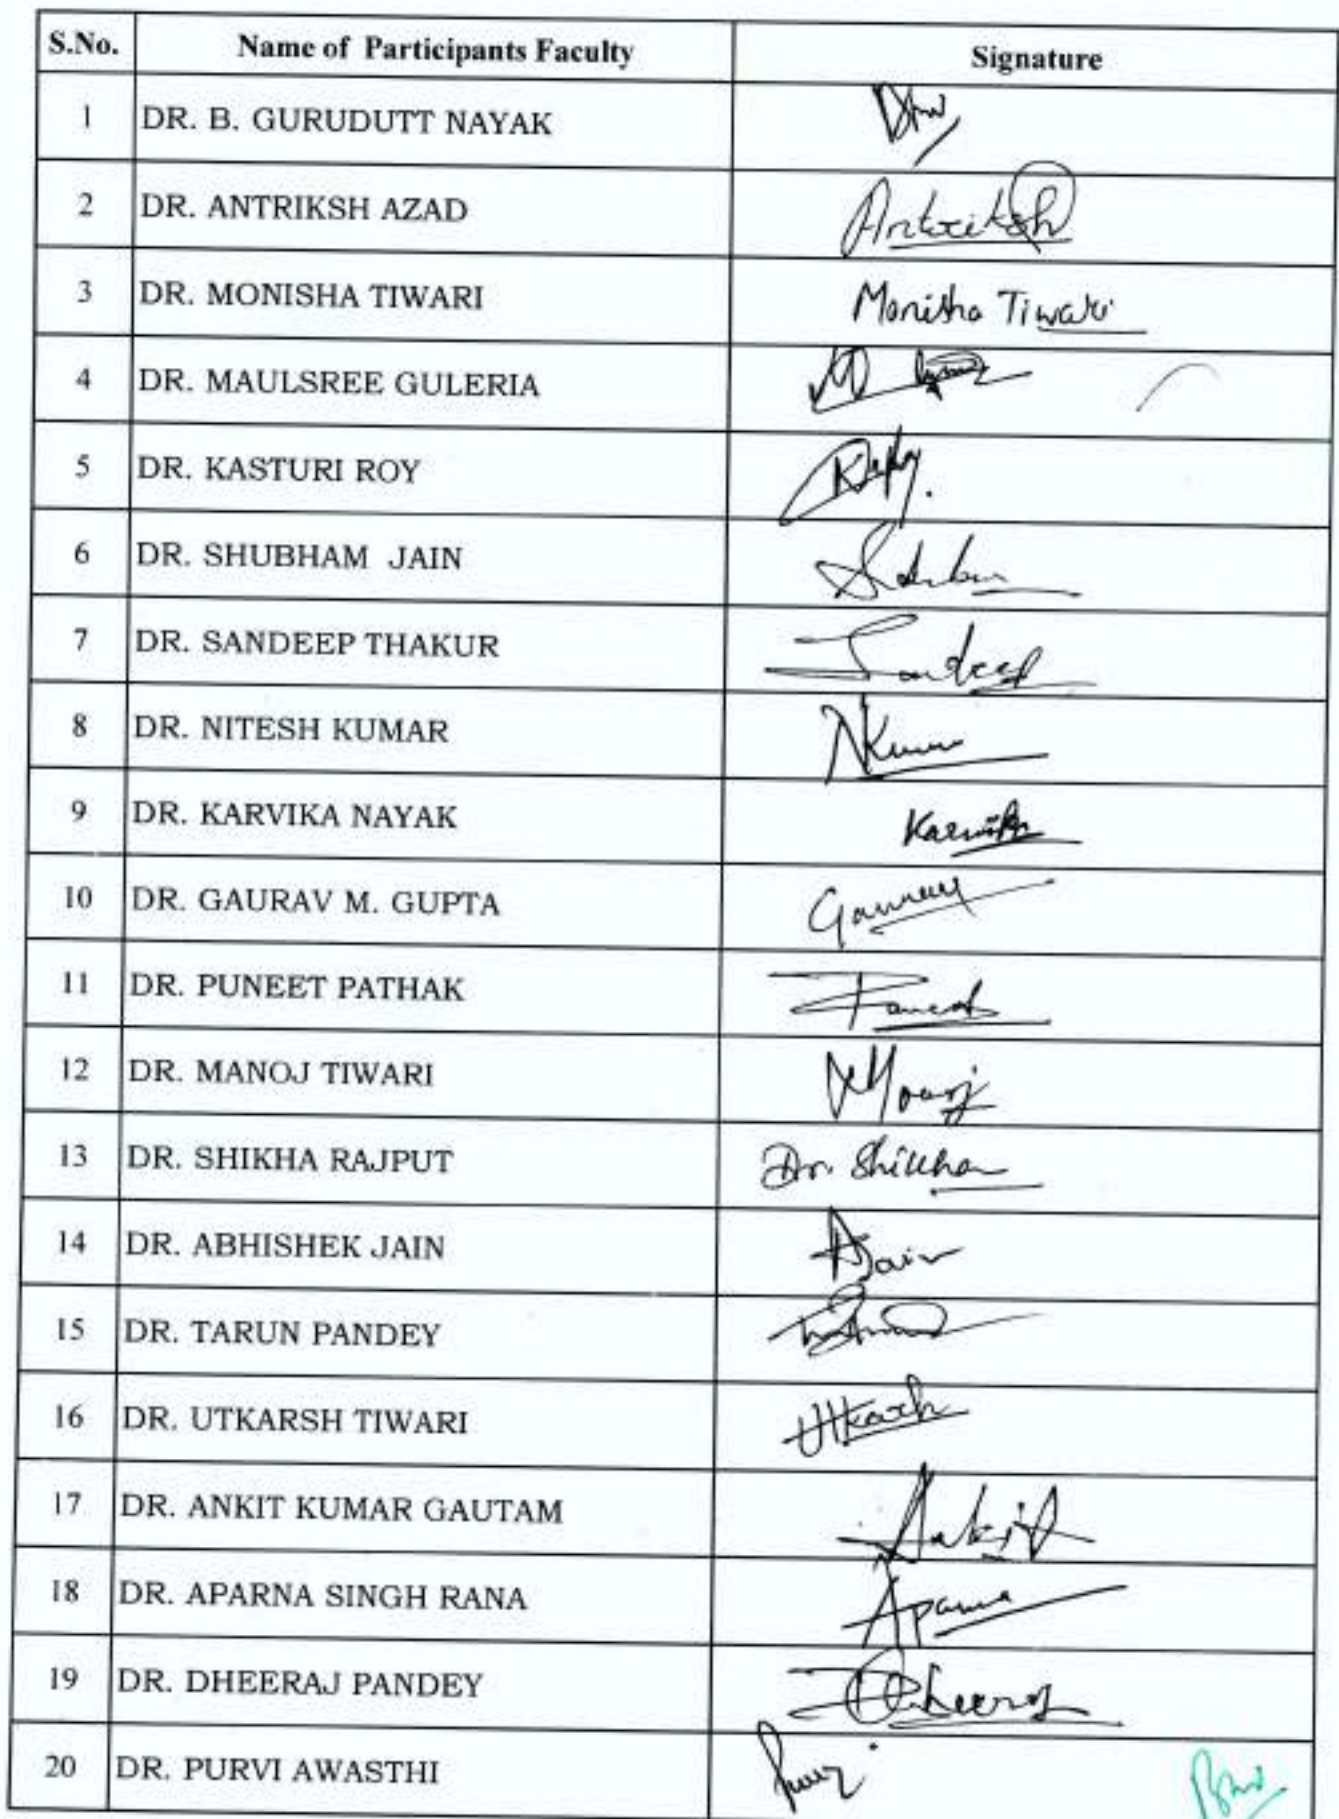 S.No. Name of Participants Faculty Signature
1 DR. B. GURUDUTT NAYAK
2 DR. ANTRIKSH AZAD Antriksh
3 DR. MONISHA TIWARI Monisha Tiwari
4 DR. MAULSREE GULERIA
5 DR. KASTURI ROY
6 DR. SHUBHAM JAIN
7 DR. SANDEEP THAKUR Sandeep
8 DR. NITESH KUMAR NKumar
9 DR. KARVIKA NAYAK Karvika
10 DR. GAURAV M. GUPTA Gaurav
11 DR. PUNEET PATHAK Puneet
12 DR. MANOJ TIWARI Manoj
13 DR. SHIKHA RAJPUT Dr. Shikha
14 DR. ABHISHEK JAIN AJain
15 DR. TARUN PANDEY
16 DR. UTKARSH TIWARI Utkarsh
17 DR. ANKIT KUMAR GAUTAM Ankit
18 DR. APARNA SINGH RANA Aparna
19 DR. DHEERAJ PANDEY Dheeraj
20 DR. PURVI AWASTHI